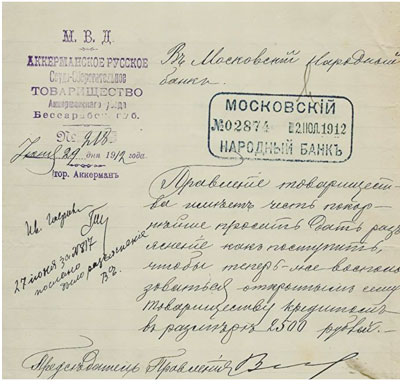 М. В. Д.
АККЕРМАНСКОЕ РУССКОЕ
Ссудо-Сберегательное
ТОВАРИЩЕСТВО
Аккерманского уѣзда
Бессарабск. губ.
№ 218
Іюня 29 дня 1912 года.
гор. Аккерманъ
Въ Московскій Народный
банкъ.
МОСКОВСКІЙ
№02874 - 2 ІЮЛ. 1912
НАРОДНЫЙ БАНКЪ
Правленіе товарищест-
ва имѣетъ честь покор-
нѣйше просить дать разъ-
ясненіе какъ поступить,
чтобы теперь-же восполь-
зоваться открытымъ ему
товариществу кредитомъ
въ размѣрѣ 2500 рублей.—
27 іюня за №
послано
разъясненіе
Предсѣдатель Правленія